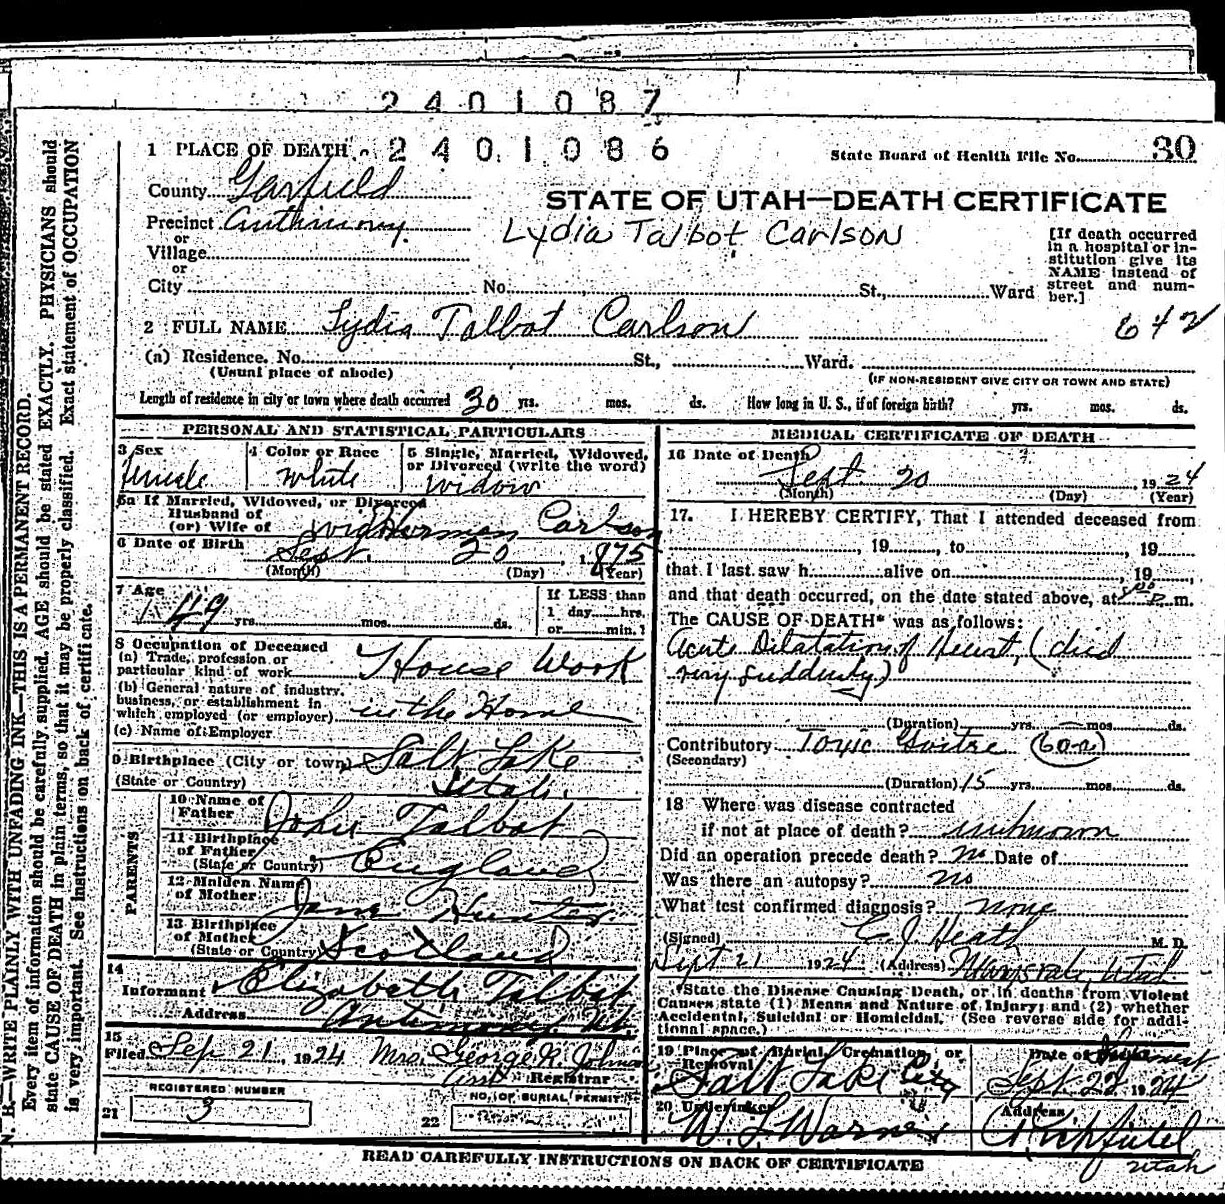 2401087
2401086
1 PLACE OF DEATH
State Board of Health File No. 30
County Garfield
STATE OF UTAH—DEATH CERTIFICATE
Precinct Anthmony.
Lydia Talbot Carlson
or
Village
or
City No. St., Ward
[If death occurred
in a hospital or in-
stitution give its
NAME instead of
street and num-
ber.]
2 FULL NAME Lydia Talbot Carlson
642
(a) Residence. No. St., Ward.
(Usual place of abode)
(IF NON-RESIDENT GIVE CITY OR TOWN AND STATE)
Length of residence in city or town where death occurred 30 yrs. mos. ds. How long in U. S., if of foreign birth? yrs. mos. ds.
PERSONAL AND STATISTICAL PARTICULARS
3 Sex
female
4 Color or Race
White
5 Single, Married, Widowed,
or Divorced (write the word)
Widow
5a If Married, Widowed, or Divorced
Husband of
(or) Wife of Herman Carlson
6 Date of Birth Sept. 20, 1875
(Month) (Day) (Year)
7 Age
49 yrs. mos. ds.
If LESS than
1 day hrs.
or min.?
8 Occupation of Deceased
(a) Trade, profession or
particular kind of work House Work
(b) General nature of industry,
business, or establishment in
which employed (or employer) in the Home
(c) Name of Employer
9 Birthplace (City or town) Salt Lake
(State or Country) Utah.
PARENTS
10 Name of
Father John Talbot
11 Birthplace
of Father
(State or Country) England
12 Maiden Name
of Mother Jane Hunter
13 Birthplace
of Mother
(State or Country) Scotland
14
Informant Elizabeth Talbot
Address Antimony, Ut.
15
Filed Sep 21, 1924 Mrs. George R. Johnson
Registrar
REGISTERED NUMBER
21 3
NO. OF BURIAL PERMIT
22
MEDICAL CERTIFICATE OF DEATH
16 Date of Death
Sept. 20 1924
(Month) (Day) (Year)
17. I HEREBY CERTIFY, That I attended deceased from
, 19 , to , 19
that I last saw h alive on , 19 ,
and that death occurred, on the date stated above, at m.
The CAUSE OF DEATH* was as follows:
Acute Dilatation of Heart, (died
very suddenly)
(Duration) yrs. mos. ds.
Contributory Toxic Goitre (60a)
(Secondary)
(Duration) 15 yrs. mos. ds.
18 Where was disease contracted
if not at place of death? unknown
Did an operation precede death? no Date of
Was there an autopsy? no
What test confirmed diagnosis? none
(Signed) C. J. Heath M. D.
Sept 21 1924 (Address) Utah
*State the Disease Causing Death, or in deaths from Violent
Causes state (1) Means and Nature of Injury; and (2) whether
Accidental, Suicidal or Homicidal. (See reverse side for addi-
tional space.)
19 Place of Burial, Cremation, or
Removal
Salt Lake City
Date of
Sept 22 1924
20 Undertaker
W. L. Warner
Address
Richfield
Utah
READ CAREFULLY INSTRUCTIONS ON BACK OF CERTIFICATE
N. B.—WRITE PLAINLY WITH UNFADING INK—THIS IS A PERMANENT RECORD.
Every item of information should be carefully supplied. AGE should be stated EXACTLY. PHYSICIANS should
state CAUSE OF DEATH in plain terms, so that it may be properly classified. Exact statement of OCCUPATION
is very important. See instructions on back of certificate.